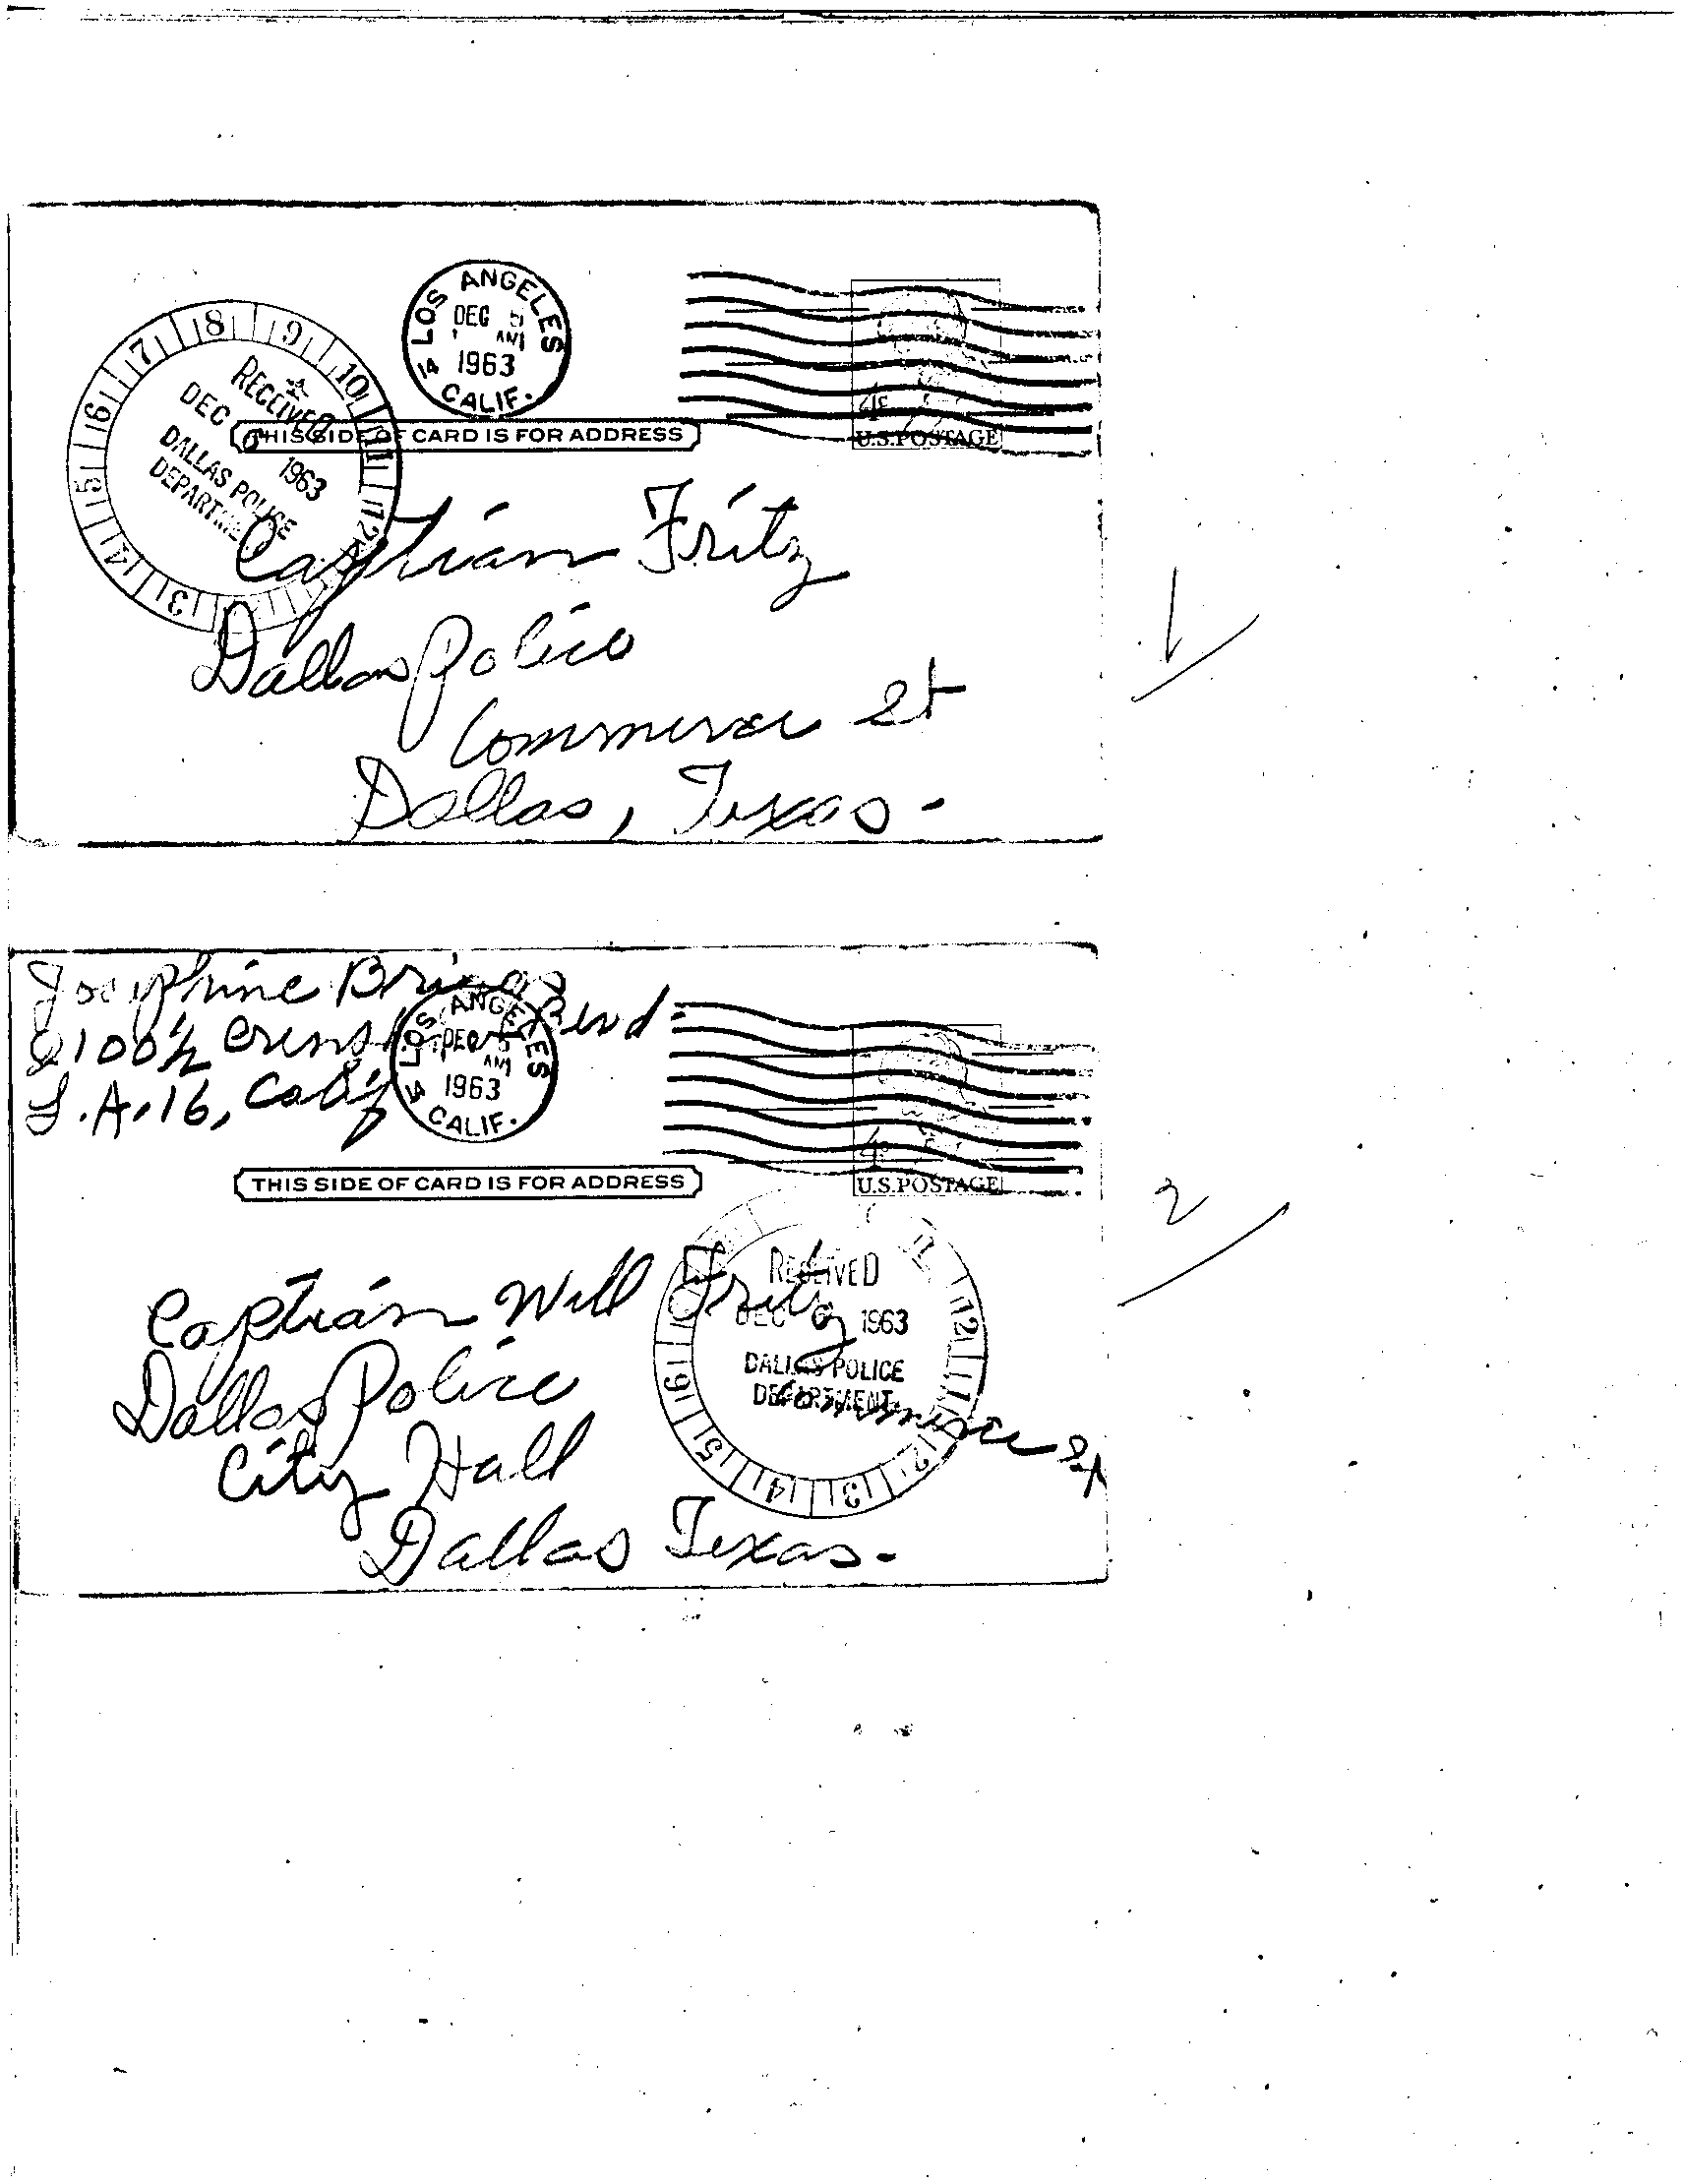 LOS ANGELES
DEC 5
AM
1963
14 CALIF.
RECEIVED
DEC 6 1963
DALLAS POLICE
DEPARTMENT
THIS SIDE OF CARD IS FOR ADDRESS
4¢
U.S.POSTAGE
Captián Fritz
Dallas Police
Commerce St
Dallas, Texas.
1
Josephine Briggs
2100½ Crenshaw Blvd.
L.A. 16, Calif
LOS ANGELES
DEC 5
AM
1963
14 CALIF.
THIS SIDE OF CARD IS FOR ADDRESS
4¢
U.S.POSTAGE
2
RECEIVED
DEC 6 1963
DALLAS POLICE
DEPARTMENT
Captián Will Fritz
Dallas Police
City Hall Commerce St
Dallas Texas.